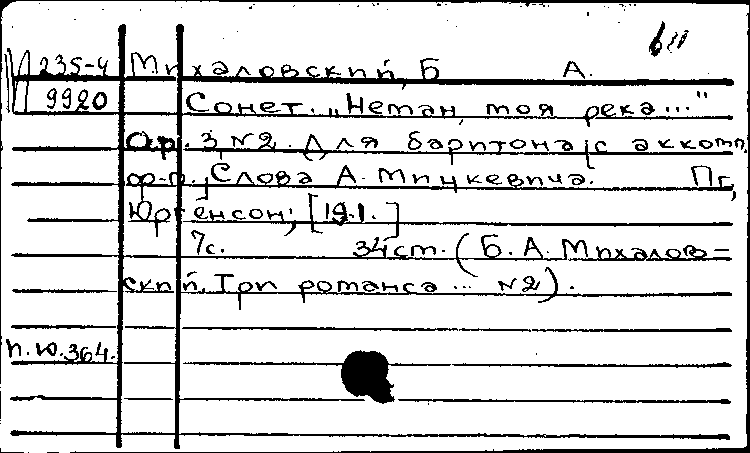 М 235-4 Михаловский, Б А.
9920 Сонет. „Неман, моя река..."
Ор. 3, №2. Для баритона с аккомп.
ф-п. Слова А. Мицкевича. Пг,
Юргенсон, [19.1.]
7с. 34 ст. (Б. А. Михалов=
ский. Три романса ... №2).
п.ю.364.